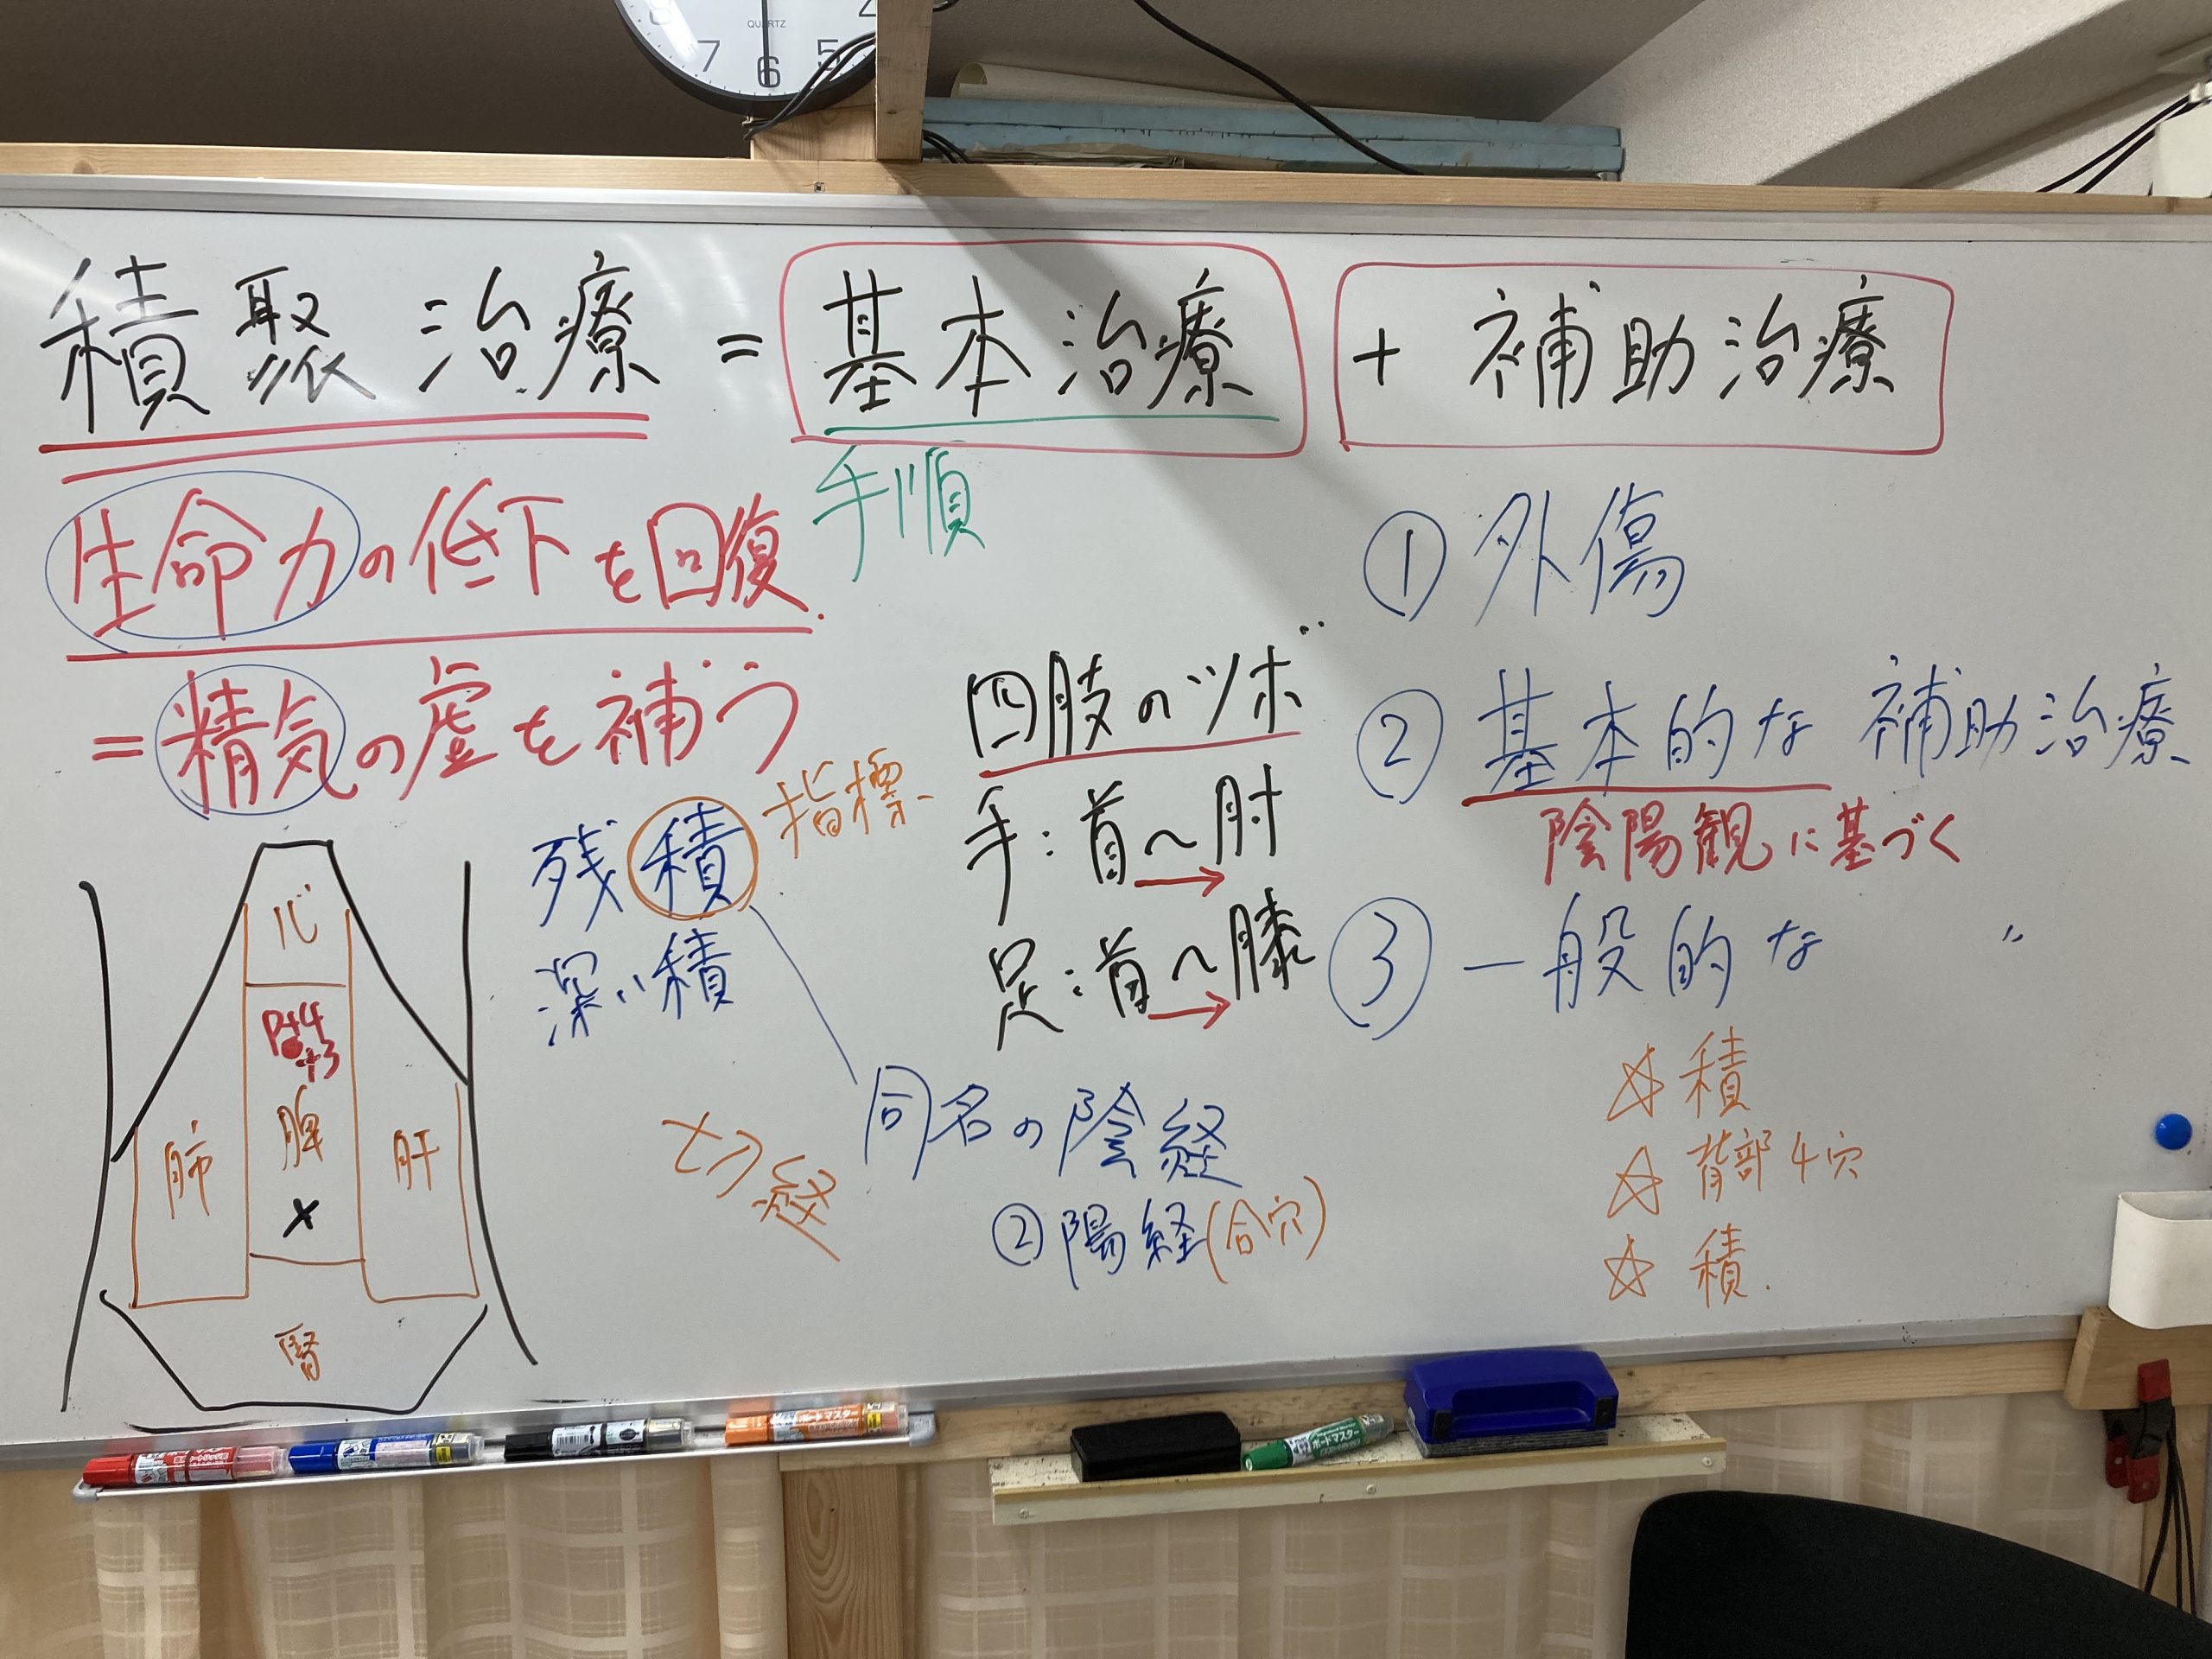 QUARTZ
7 6 5
積聚治療 = 基本治療 + 補助治療
手順
生命力の低下を回復.
= 精気の虚を補う
残積 指標
深い積
同名の陰経
② 陽経(合穴)
切経
四肢のツボ
手:首〜肘
足:首〜膝
① 外傷
② 基本的な補助治療
陰陽観に基づく
③ 一般的な 〃
☆ 積
☆ 背部4穴
☆ 積.
心
P+4
+3
肺 脾 肝
×
腎
ボードマスター
ボードマスター